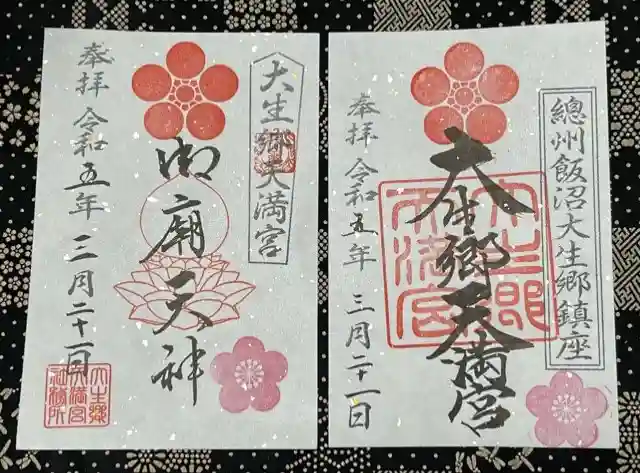 總州飯沼大生郷鎮座
大生郷天満宮
奉拝 令和五年 三月二十一日
大生郷天満宮
大生郷天満宮
御廟天神
奉拝 令和五年 三月二十一日
大生郷天満宮御務所